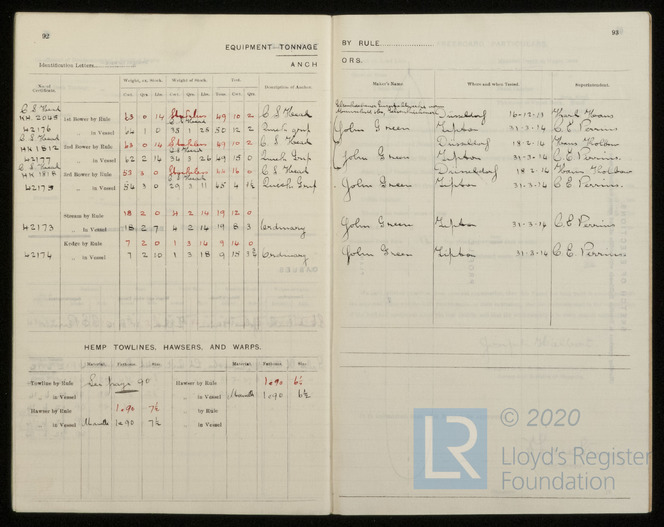 92
EQUIPMENT TONNAGE
Identification Letters
ANCH
No. of Certificate.
Weight, ex. Stock.
Weight of Stock.
Test.
Description of Anchor.
Cwt. Qrs. lbs. Cwt. Qrs. Lbs. Tons. Cwt. Qrs.
C S Head
HH 2045 1st Bower by Rule 63 0 14 Stockless 49 10 2 C S Head
42176 „ in Vessel 64 1 0 38 1 25 50 12 2
HH 1812 2nd Bower by Rule 63 0 14 Stockless 49 10 2 C S Head
42177 „ in Vessel 62 2 14 36 3 26 49 15 0
HH 1818 3rd Bower by Rule 53 3 0 Stockless 44 16 0 C S Head
42175 „ in Vessel 54 3 0 29 3 11 45 4
Stream by Rule 18 2 0 4 2 14 19 12 0
42173 „ in Vessel 18 2 7 4 2 14 19 8 3 Ordinary
Kedge by Rule 7 2 0 1 3 14 9 14 0
42174 „ in Vessel 7 2 10 1 3 18 9 15 Ordinary
HEMP TOWLINES, HAWSERS, AND WARPS.
Material. Fathoms. Size. Material. Fathoms. Size.
Towline by Rule See page 90 Hawser by Rule 1 @ 90 6½
„ in Vessel „ in Vessel Manilla 1 @ 90 6½
Hawser by Rule 1 @ 90 7½ „ by Rule
„ in Vessel Manilla 1 @ 90 7½ „ in Vessel
93
BY RULE
ORS.
Maker's Name.
Where and when Tested.
Superintendent.
Düsseldorf 16-12-13
John Green Tipton 31-3-14 C. E. Perrins
Düsseldorf 18-2-14
John Green Tipton 31-3-14 C. E. Perrins.
Düsseldorf 18-2-14
John Green Tipton 31-3-14 C. E. Perrins.
John Green Tipton 31-3-14 C. E. Perrins
John Green Tipton 31-3-14 C. E. Perrins
© 2020
LR
Lloyd's Register
Foundation